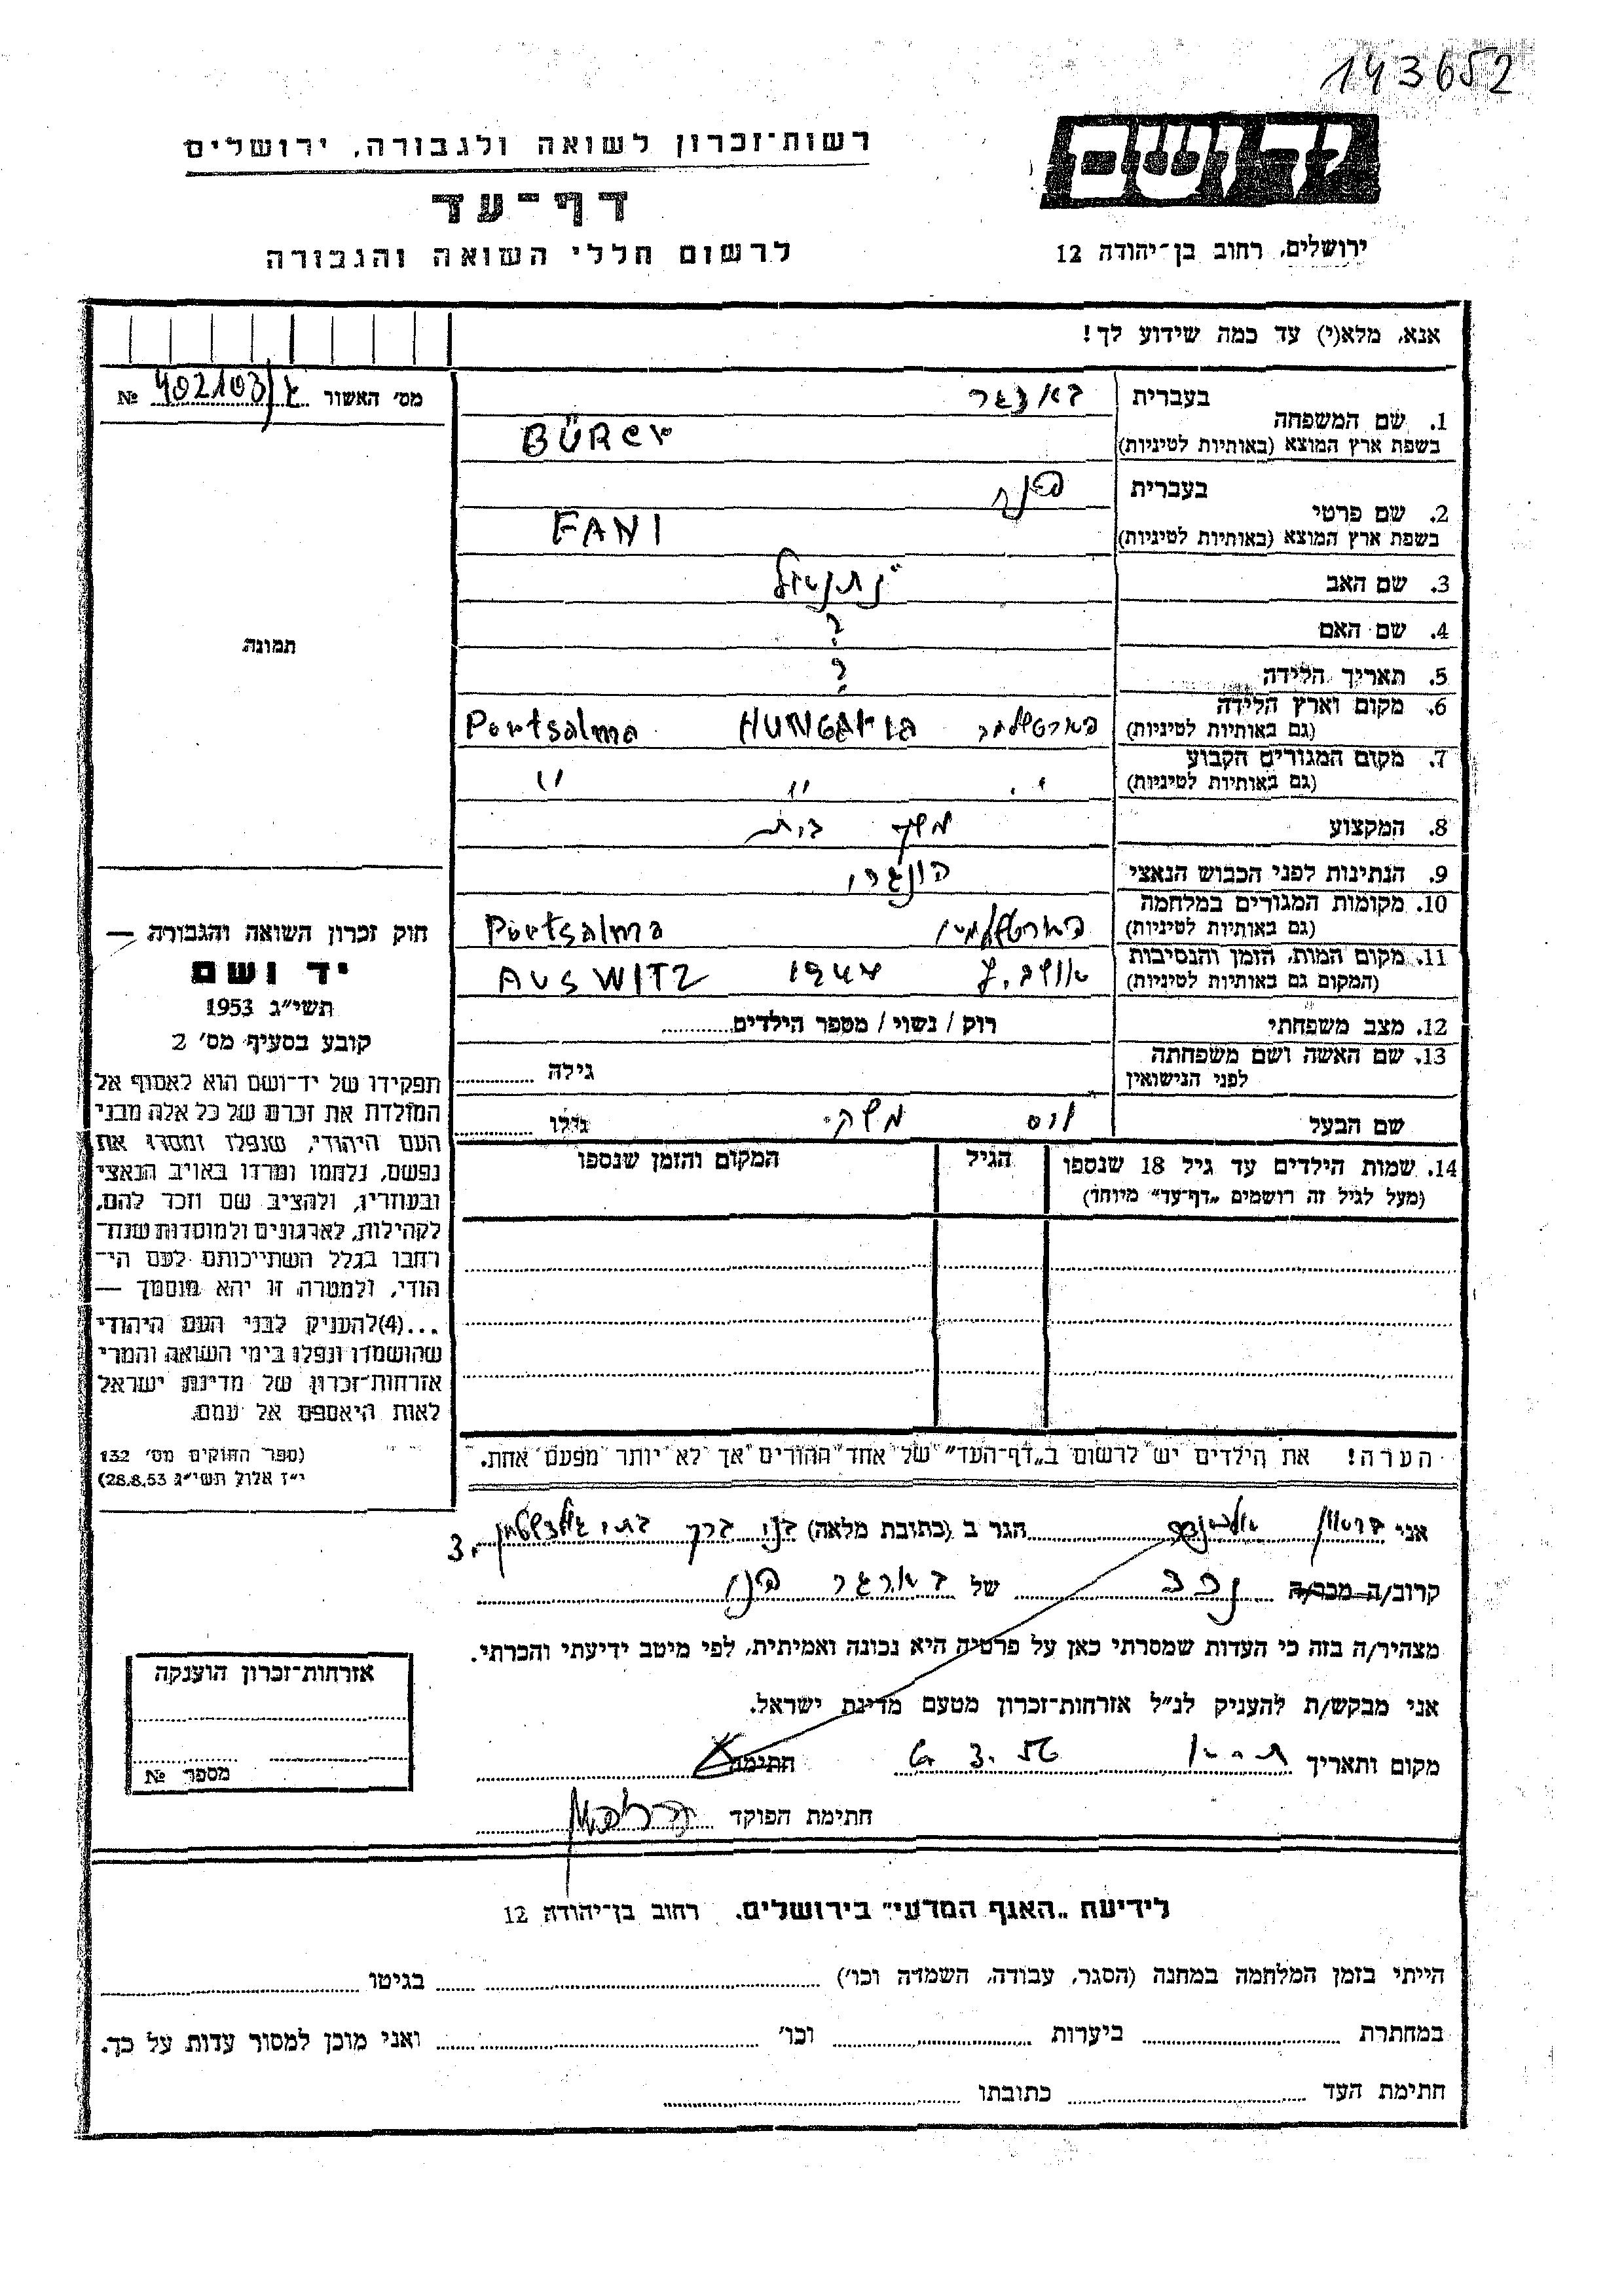 143652
רשות־זכרון לשואה ולגבורה, ירושלים
יד ושם
דף־עד
לרשום חללי השואה והגבורה
ירושלים, רחוב בן־יהודה 12
אנא, מלא(י) עד כמה שידוע לך!
מס׳ האשור № 402103/
1. שם המשפחה בעברית
בשפת ארץ המוצא (באותיות לטיניות) BÜRGER
2. שם פרטי בעברית פני
בשפת ארץ המוצא (באותיות לטיניות) FANI
3. שם האב נתנאל
4. שם האם ?
5. תאריך הלידה ?
6. מקום וארץ הלידה (גם באותיות לטיניות) HUNGARIA Portsalma
7. מקום המגורים הקבוע (גם באותיות לטיניות) " " "
8. המקצוע משק בית
9. הנתינות לפני הכבוש הנאצי הונגרי
10. מקומות המגורים במלחמה (גם באותיות לטיניות) Portsalma
11. מקום המות, הזמן והנסיבות (המקום גם באותיות לטיניות) 1944 AUSWITZ
12. מצב משפחתי רוק / נשוי / מספר הילדים
13. שם האשה ושם משפחתה לפני הנישואין גילה
שם הבעל גילו
14. שמות הילדים עד גיל 18 שנספו הגיל המקום והזמן שנספו
(מעל לגיל זה רושמים „דף־עד״ מיוחד)
הערה! את הילדים יש לרשום ב„דף־העד״ של אחד ההורים אך לא יותר מפעם אחת.
תמונה
חוק זכרון השואה והגבורה —
יד ושם
תשי״ג 1953
קובע בסעיף מס׳ 2
תפקידו של יד־ושם הוא לאסוף אל
המולדת את זכרם של כל אלה מבני
העם היהודי, שנפלו ומסרו את
נפשם, נלחמו ומרדו באויב הנאצי
ובעוזריו, ולהציב שם וזכר להם,
לקהילות, לארגונים ולמוסדות שנח־
רבו בגלל השתייכותם לעם הי־
הודי, ולמטרה זו יהא מוסמך —
...(4)להעניק לבני העם היהודי
שהושמדו ונפלו בימי השואה והמרי
אזרחות־זכרון של מדינת ישראל
לאות היאספם אל עמם.
(ספר החוקים מס׳ 132
י״ז אלול תשי״ג 28.8.53)
אני הגר ב (כתובת מלאה) בני ברק 3.
קרוב/ה מכר/ה נכד של בארגר פני
מצהיר/ה בזה כי העדות שמסרתי כאן על פרטיה היא נכונה ואמיתית, לפי מיטב ידיעתי והכרתי.
אני מבקש/ת להעניק לנ״ל אזרחות־זכרון מטעם מדינת ישראל.
מקום ותאריך 6.3.56 חתימה
חתימת הפוקד
אזרחות־זכרון הוענקה
מספר №
לידיעת „האגף המדעי״ בירושלים, רחוב בן־יהודה 12
הייתי בזמן המלחמה במחנה (הסגר, עבודה, השמדה וכו׳) בגיטו
במחתרת ביערות וכו׳ ואני מוכן למסור עדות על כך.
חתימת העד כתובתו